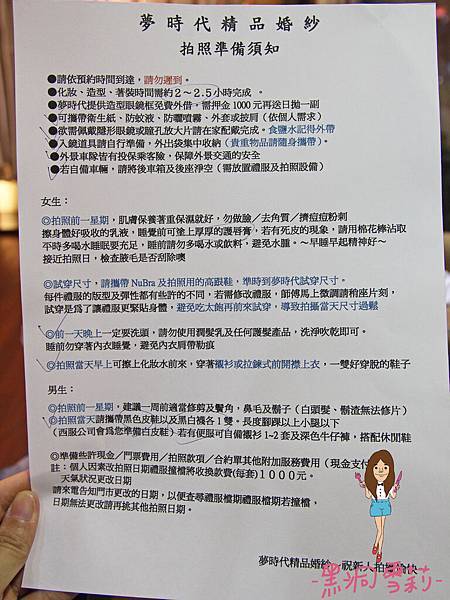 夢時代精品婚紗
拍照準備須知
●請依預約時間到達，請勿遲到。
●化妝、造型、著裝時間需約２～２.５小時完成 。
●夢時代提供造型眼鏡框免費外借，需押金 1000 元再送日拋一副
●可攜帶衛生紙、防蚊液、防曬噴霧、外套或披肩（依個人需求）
●欲需佩戴隱形眼鏡或瞳孔放大片請在家配戴完成。食鹽水記得外帶
●入鏡道具請自行準備，外出袋集中收納（貴重物品請隨身攜帶）。
●外景車隊皆有投保乘客險，保障外景交通的安全
●若自備車輛，請將後車箱及後座淨空（需放置禮服及拍照設備）
女生：
◎拍照前一星期，肌膚保養著重保濕就好，勿做臉／去角質／擠痘痘粉刺
擦身體好吸收的乳液，睡覺前可塗上厚厚的護唇膏，若有死皮的現象，請用棉花棒沾取
不時多喝水睡眠要充足，睡前請勿多喝水或飲料，避免水腫。～早睡早起精神好～
接近拍照日，檢查腋毛是否刮除噢
◎試穿尺寸，請攜帶 NuBra 及拍照用的高跟鞋，準時到夢時代試穿尺寸。
每件禮服的版型及彈性都有些許的不同，若需修改禮服，師傅馬上微調請稍座片刻，
試穿是為了讓禮服更緊貼身體，避免吃太飽再前來試穿，導致拍攝當天尺寸過鬆
◎前一天晚上一定要洗頭，請勿使用潤髮乳及任何護髮產品，洗淨吹乾即可。
睡前勿穿著內衣睡覺，避免內衣肩帶勒痕
◎拍照當天早上可擦上化妝水前來，穿著襯衫或拉鍊式前開襟上衣，一雙好穿脫的鞋子
男生：
◎拍照前一星期，建議一周前適當修剪及鬢角，鼻毛及鬍子（白頭髮、鬍渣無法修片）
◎拍照當天請攜帶黑色皮鞋以及黑白襪各 1 雙。長度腳踝以上小腿以下
（西服公司會為您準備白皮鞋）若有便服可自備襯衫 1~2 套及深色牛仔褲，搭配休閒鞋
◎準備些許現金／門票費用／拍照款項／合約單其他附加服務費用（現金支付
註：個人因素改拍照日期禮服撞檔將收換款費(每套)１０００元。
天氣狀況更改日期
請來電告知門市更改的日期，以便查尋禮服檔期禮服檔期若撞檔，
日期無法更改請再挑其他拍照日期。
夢時代精品婚紗 祝新人拍攝愉快
-黑洞雪莉-